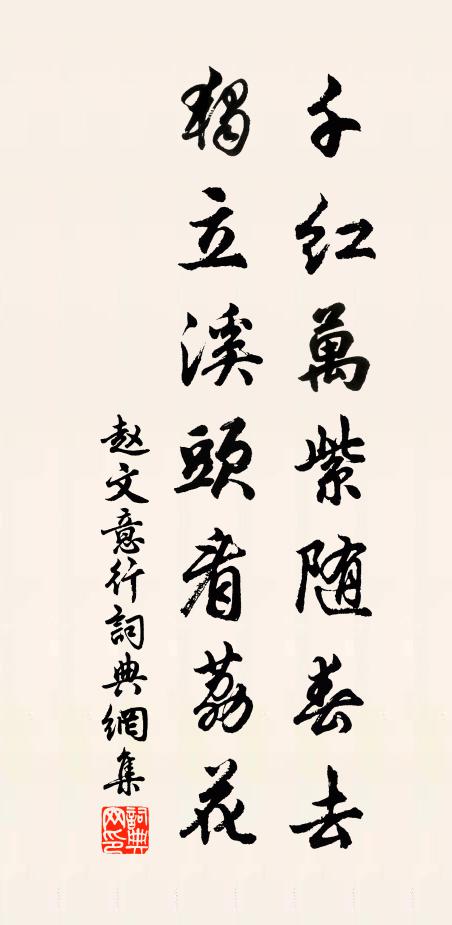 千红萬紫随春去
獨立溪頭看荔花
赵文意行詞典網集
詞典网印